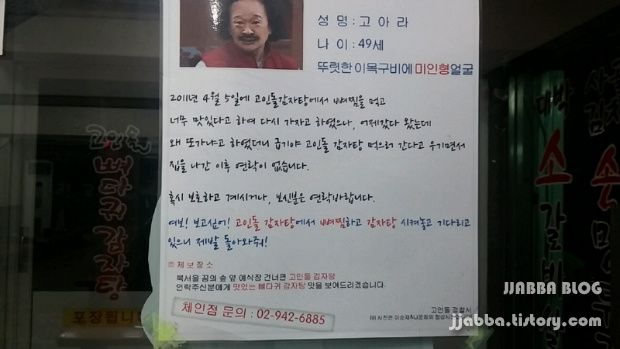 성 명 : 고 아 라
나 이 : 49세
뚜렷한 이목구비에 미인형얼굴
2011년 4월 5일에 고인돌감자탕에서 뼈찜을 먹고
너무 맛있다고 하여 다시 가자고 하였으나, 어제갔다 왔는데
왜 또가냐고 하였더니 급기야 고인돌 감자탕 먹으러 간다고 우기면서
집을 나간 이후 연락이 없습니다.
혹시 보호하고 계시거나, 보신분은 연락바랍니다.
여보! 보고싶어! 고인돌 감자탕에서 뼈찜하고 감자탕 시켜놓고 기다리고
있으니 제발 돌아와줘!
※ 제 보 장 소
북서울 꿈의 숲 옆 예식장 건너편 고인돌 감자탕
연락주신분에게 맛있는 뼈다귀 감자탕 맛을 보여드리겠습니다.
체인점 문의 : 02-942-6885
고인돌 경찰서
고인돌
뼈다귀감자탕
포장됩니다
소갈비
JJABBA BLOG
jjabba.tistory.com